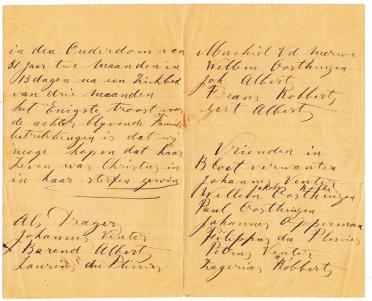 in den Ouderdom van
81 Jaar twe Maanden in
13 dagen na een Ziekbed
van drie Maanden
het Enigste troost voor
de achter blyvende Familie
betrekkingen is dat wij
moge hopen dat haar
Leven was Christus in
in haar sterfen gewin
Als Drager
Johannes Venter
x Barend Albert
Lourens du Plessies
Machiel Vd Merwe
Willem Oosthuizen
Joh Albert
Frans Robbert
Gert Albert
Vrienden in
Bloet verwanten
Johannes Venter
Jakobus
Willem Oosthuizen
Paul Oosthuizen
Johannes Opperman
Filippus du Plessies
Petrus Venter
Zagarias Robbert